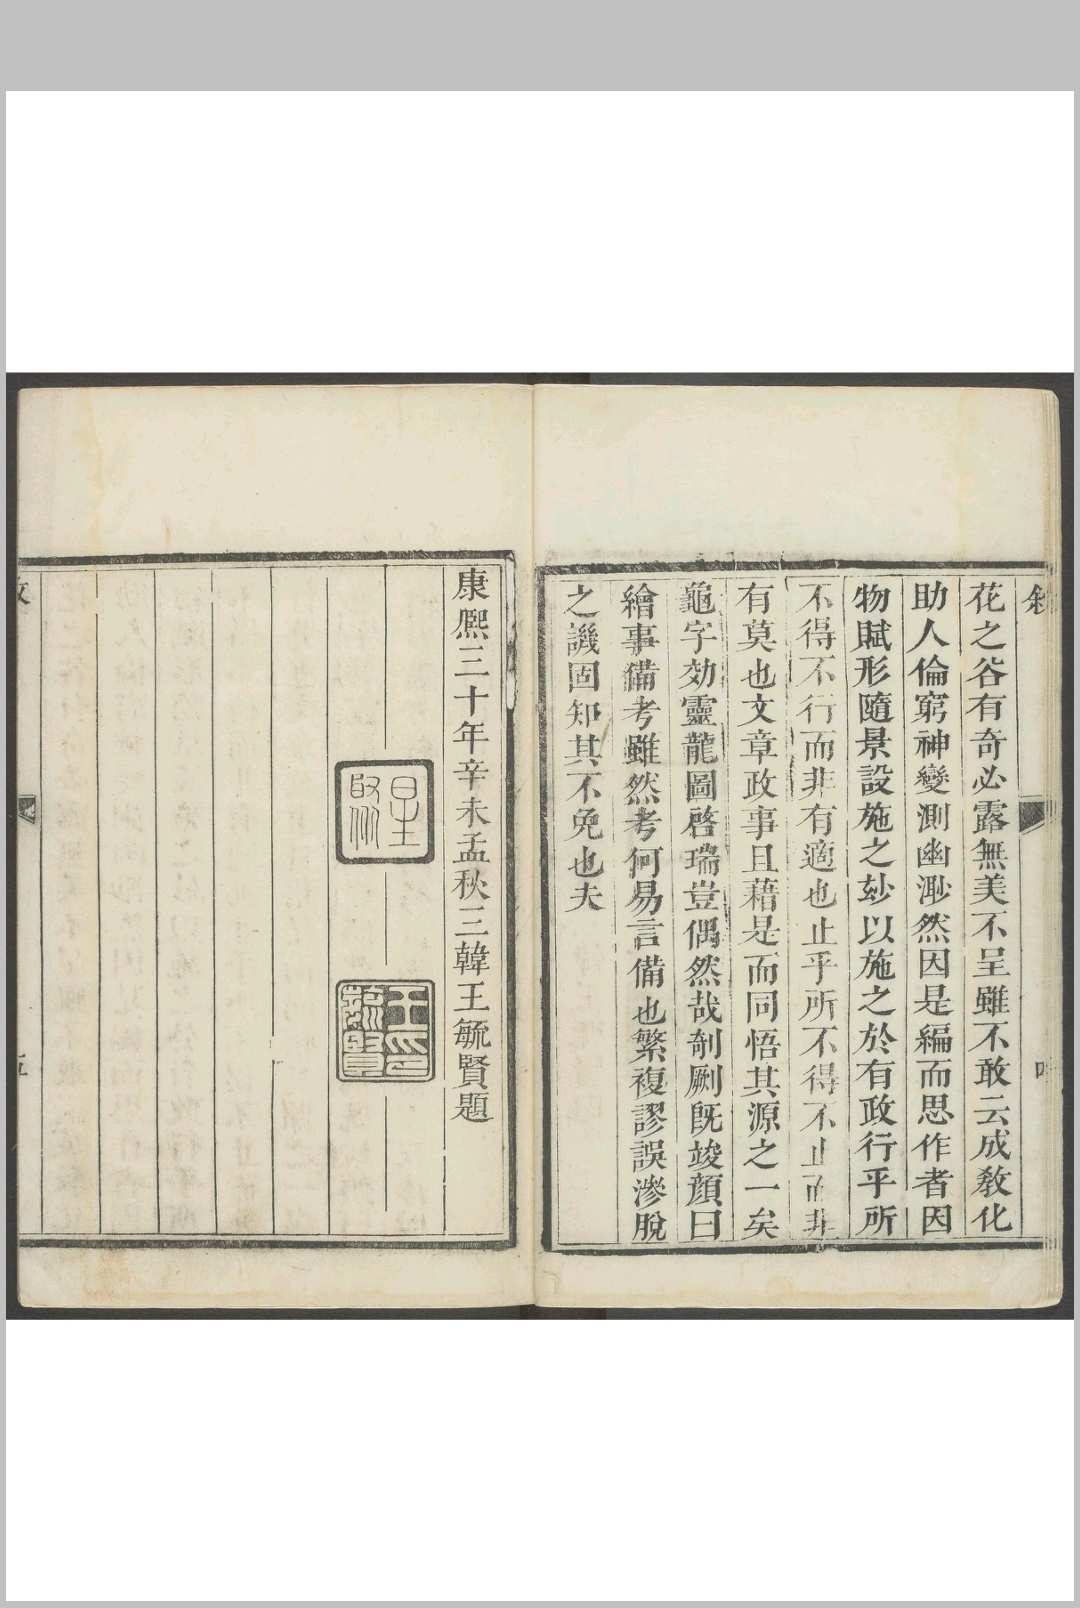 花之谷有奇必露無美不呈雖不敢云成敎化
助人倫窮神變測幽渺然因是編而思作者因
物賦形隨景設施之玅以施之於有政行乎所
不得不行而非有適也止乎所不得不止而非
有莫也文章政事且藉是而同悟其源之一矣
龜字効靈龍圖啓瑞豈偶然哉剞劂旣竣顏曰
繪事備考雖然考何易言備也繁複謬誤滲脫
之譏固知其不免也夫
康熙三十年辛未孟秋三韓王毓賢題
星聚
王毓賢印